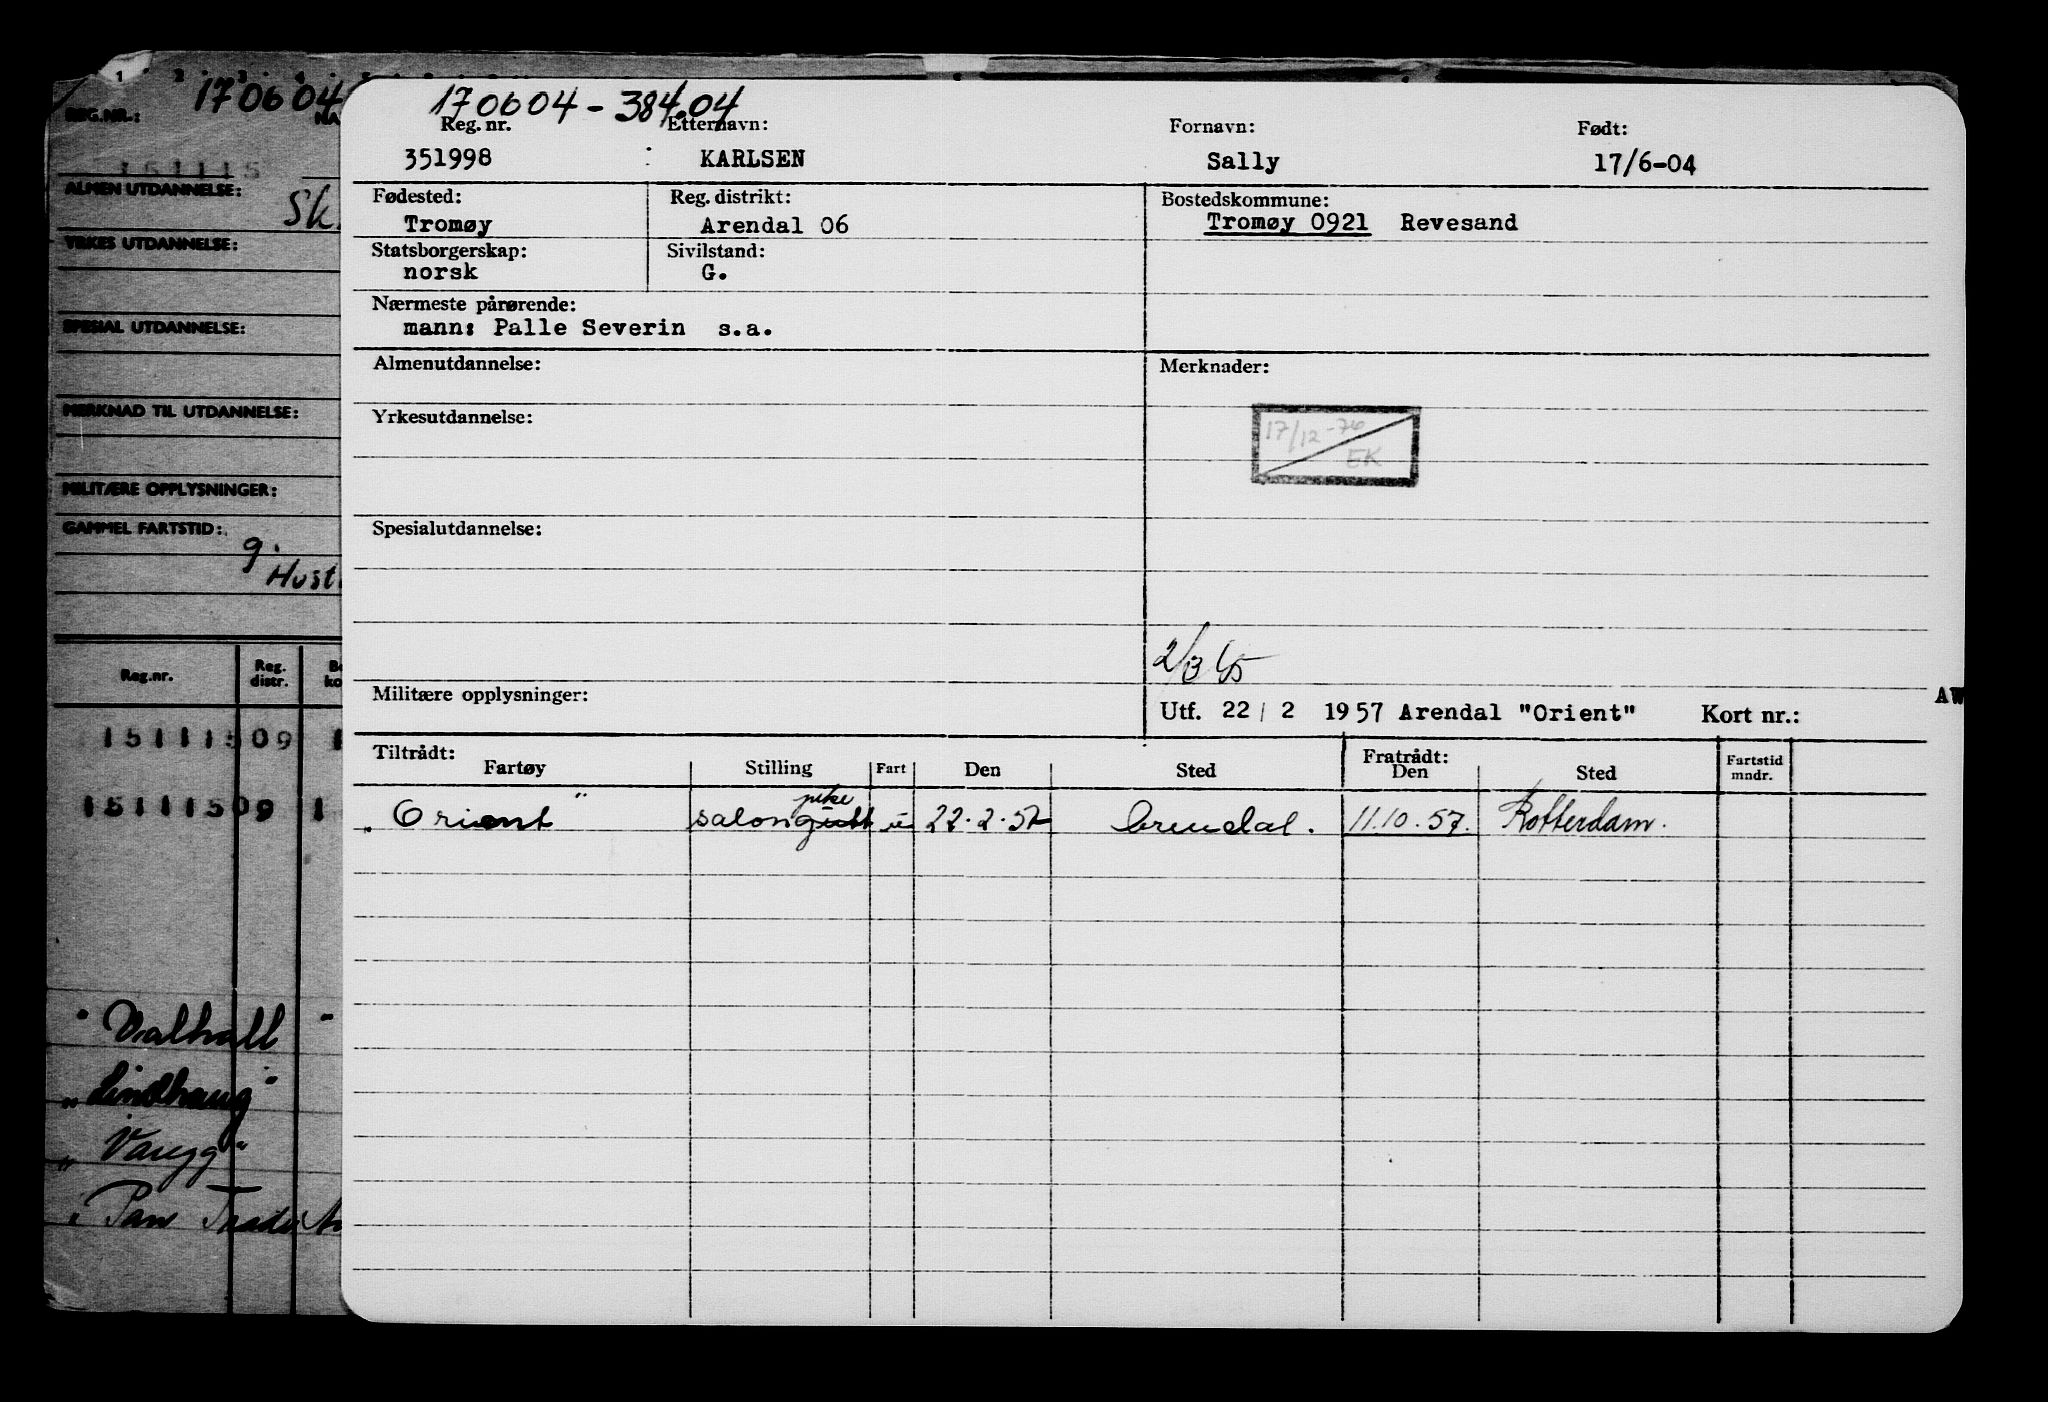 1 2 3 4
REG.NR.: 170604 NA
151115
ALMEN UTDANNELSE: Sk.
YRKES UTDANNELSE:
SPESIAL UTDANNELSE:
MERKNAD TIL UTDANNELSE:
MILITÆRE OPPLYSNINGER:
GAMMEL FARTSTID:
g.
Hust
Reg.nr. Reg. distr. Bo ko
151115 09 1
151115 09 1
"Valhall"
"Lindhaug"
"Varygg"
"Pan Trader
170604 - 384.04
Reg. nr. Etternavn: Fornavn: Født:
351998 KARLSEN Sally 17/6-04
Fødested: Reg. distrikt: Bostedskommune:
Tromøy Arendal 06 Tromøy 0921 Revesand
Statsborgerskap: Sivilstand:
norsk G.
Nærmeste pårørende:
mann: Palle Severin s.a.
Almenutdannelse: Merknader:
Yrkesutdannelse:
17/12-76
EK
Spesialutdannelse:
2/3 65
Militære opplysninger: AW
Utf. 22 / 2 1957 Arendal "Orient" Kort nr.:
Tiltrådt: Fratrådt:
Fartøy Stilling Fart Den Sted Den Sted Fartstid mndr.
pike
"Orient" salongutt u 22.2.57 Arendal. 11.10.57. Rotterdam.